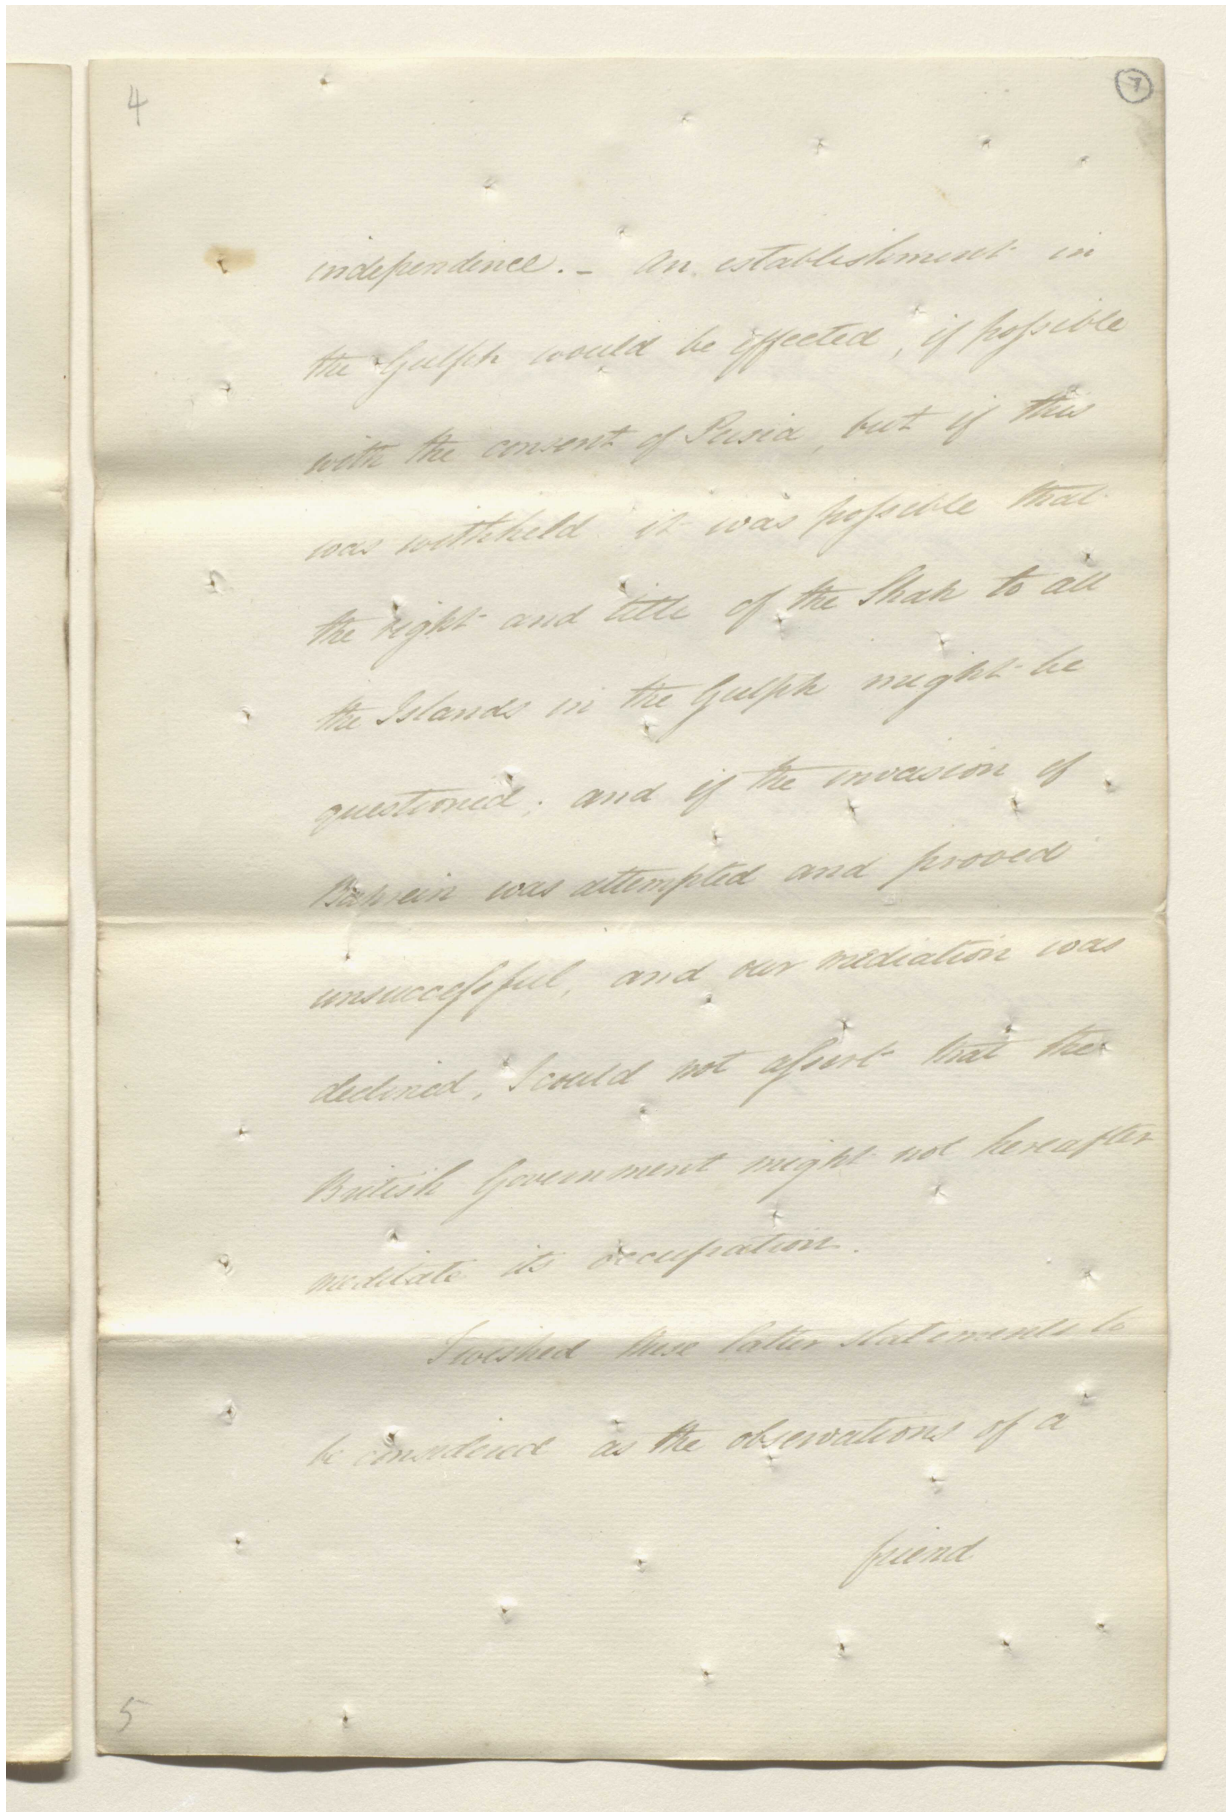 4
7
independence. - An establishment in
the Gulph would be effected, if possible
with the consent of Persia, but if this
was withheld it was possible that
the right and title of the Shah to all
the Islands in the Gulph might be
questioned; and if the invasion of
Bahrein was attempted and proved
unsuccessful, and our mediation was
declined, I could not assert that the
British Government might not hereafter
meditate its occupation.
I wished these latter statements to
be considered as the observations of a
friend
5